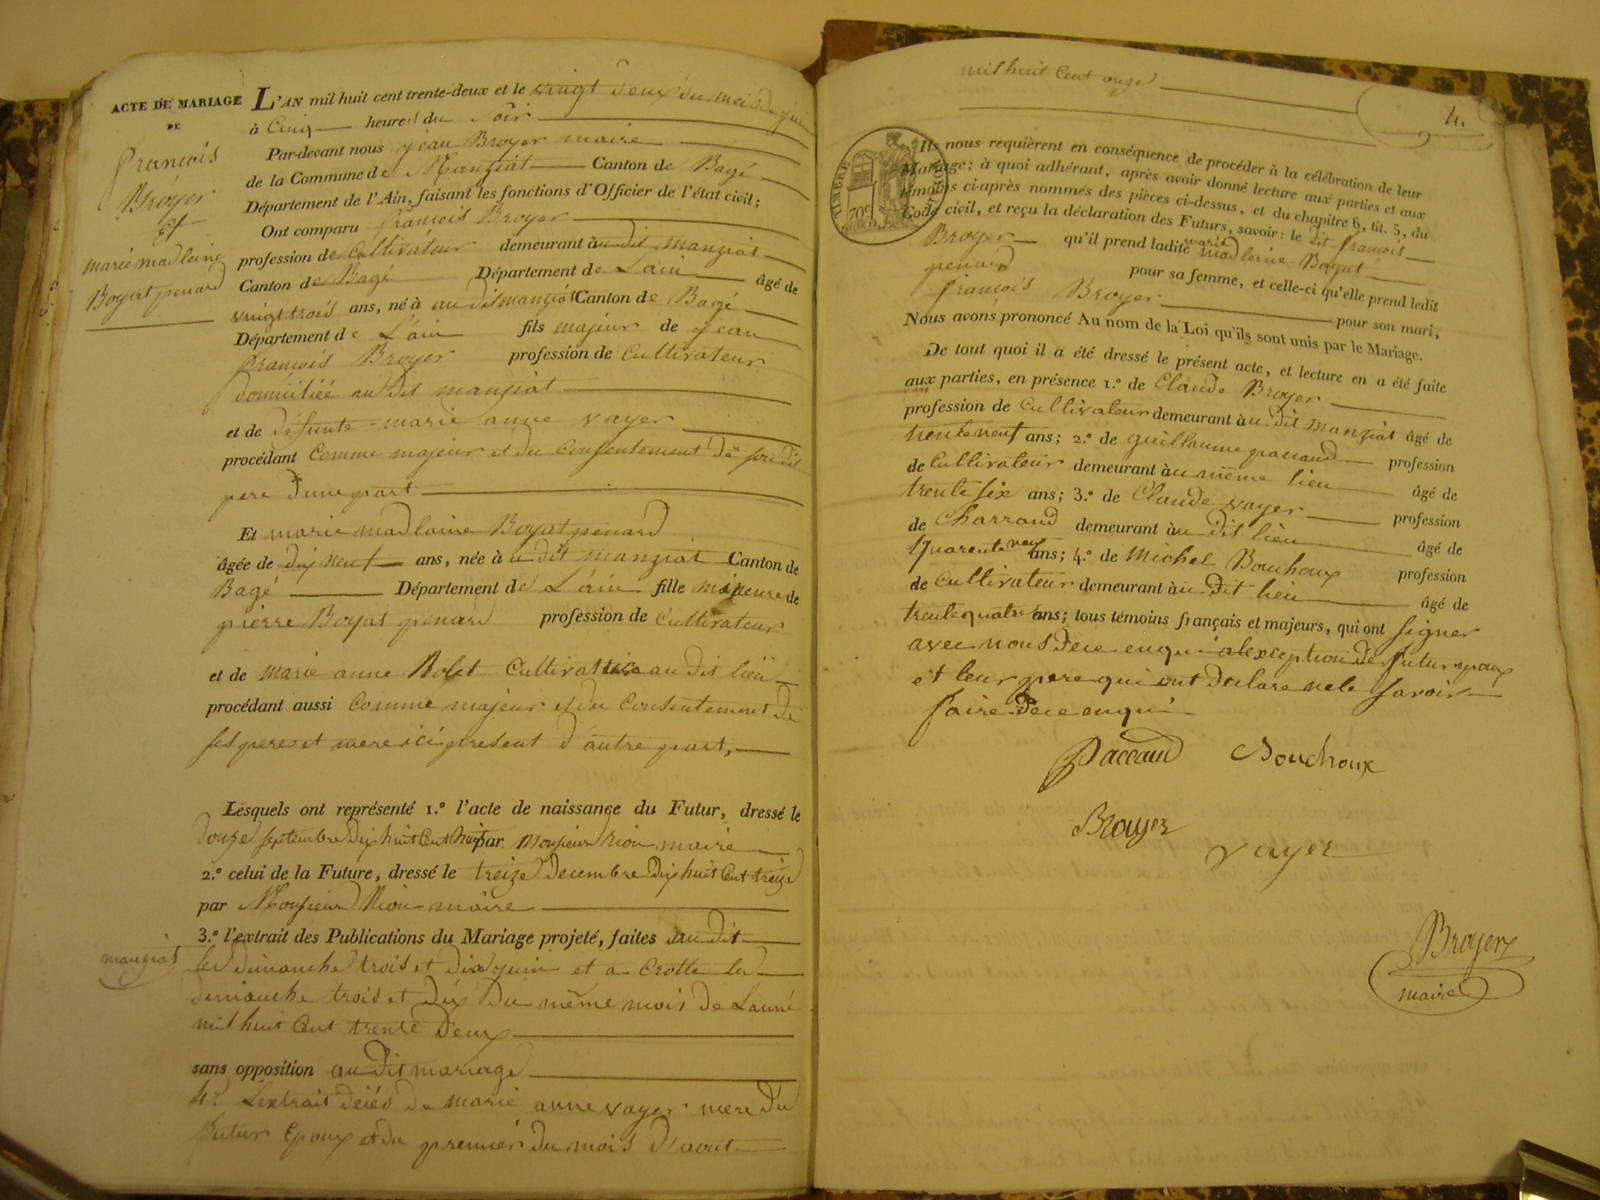 ACTE DE MARIAGE
DE
françois
Broyer
et
marie madleine
Boyat penard
L'AN mil huit cent trente-deux et le vingt deux du mois de juin
à Cinq heures du Soir
Par-devant nous jean Broyer maire
de la Commune de Manziat Canton de Bagé
Département de l'Ain, faisant les fonctions d'Officier de l'état civil;
Ont comparu françois Broyer
profession de Cultivateur demeurant au dit manziat
Canton de Bagé Département de Lain âgé de
vingt trois ans, né à au dit manziat Canton de Bagé
Département de L'ain fils majeur de jean
françois Broyer profession de Cultivateur
domiciliée au dit manziat
et de défunte marie anne vayer
procédant Comme majeur et du Consentement de son dit
pere d'une part
Et marie madlaine Boyat penard
âgée de dix neuf ans, née à u dit manziat Canton de
Bagé Département de L'ain fille mineure de
pierre Boyat penard profession de Cultivateur
et de marie anne Cultivatrice au dit lieu
procédant aussi Comme majeur et du Consentement de
ses pere et mere ici present d'autre part,
Lesquels ont représenté 1.º l'acte de naissance du Futur, dressé le
douze septembre dix huit Cent huit par Monsieur Nion maire
2.º celui de la Future, dressé le treize decembre dix huit Cent treize
par Monsieur Nion maire
3.º l'extrait des Publications du Mariage projeté, faites au dit
manziat les dimanche trois et dix juin et a Crotte les
dimanche trois et dix du même mois de Lanné
mil huit Cent trente deux
sans opposition au dit mariage
4º Lextrait de marie anne vayer mere du
futur Epoux et du premier du mois d'aout
mil huit Cent onze
4.
TIMBRE
70c
Ils nous requièrent en conséquence de procéder à la célébration de leur
Mariage; à quoi adhérant, après avoir donné lecture aux parties et aux
témoins ci-après nommés des pièces ci-dessus, et du chapitre 6, tit. 5, du
Code civil, et reçu la déclaration des Futurs, savoir: le dit françois
Broyer qu'il prend ladite marie madleine Boyat
penard pour sa femme, et celle-ci qu'elle prend ledit
françois Broyer pour son mari,
Nous avons prononcé Au nom de la Loi qu'ils sont unis par le Mariage.
De tout quoi il a été dressé le présent acte, et lecture en a été faite
aux parties, en présence 1.º de Claude Broyer
profession de Cultivateur demeurant àu dit manziat âgé de
trente neuf ans; 2.º de guillaume pacaud profession
de Cultivateur demeurant àu même lieu âgé de
trente six ans; 3.º de Claude vayer profession
de Charrand demeurant àu dit lieu âgé de
quarente neuf ans; 4.º de Michel Bouchoux profession
de Cultivateur demeurant àu dit lieu âgé de
trente quatre ans; tous témoins français et majeurs, qui ont signer
avec nous dece enqui alexception de futur epoux
et leur pere qui ont declare ne le savoir
faire dece enqui
Paccaud Bouchoux
Brouyer
vayer
Broyer
maire